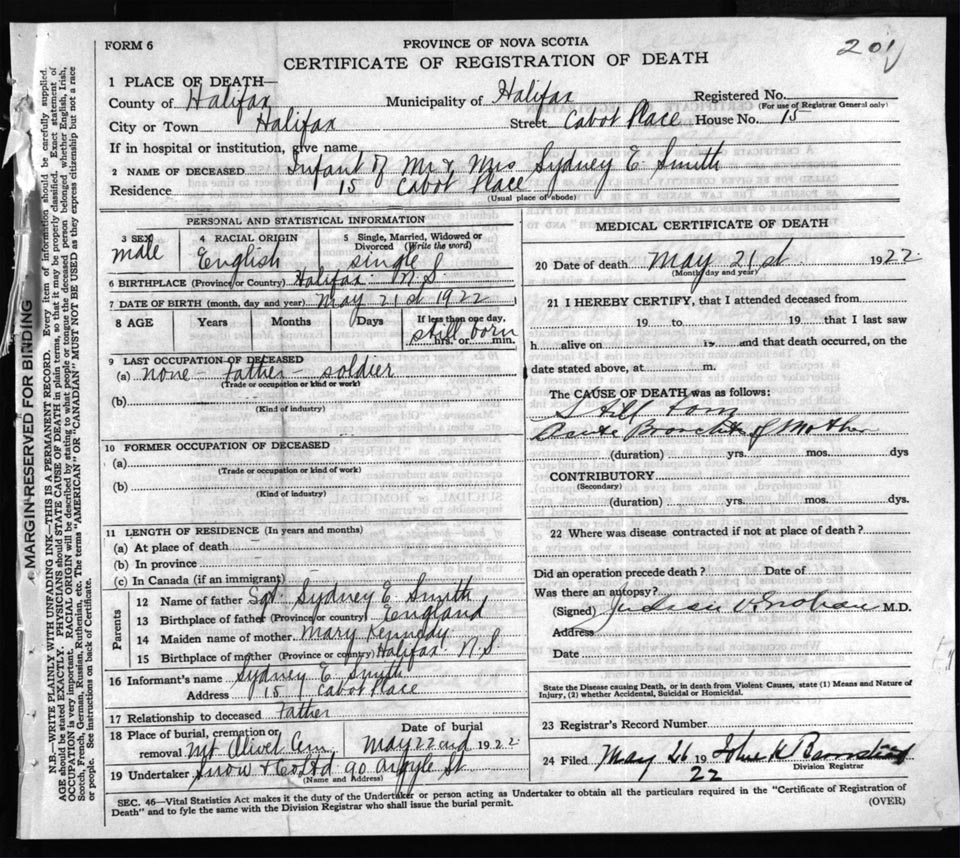 FORM 6
PROVINCE OF NOVA SCOTIA
CERTIFICATE OF REGISTRATION OF DEATH
201
1 PLACE OF DEATH—
County of Halifax Municipality of Halifax Registered No.
(For use of Registrar General only)
City or Town Halifax Street Cabot Place House No. 15
If in hospital or institution, give name
2 NAME OF DECEASED Infant of Mr & Mrs Sydney E Smith
Residence 15 Cabot Place
(Usual place of abode)
PERSONAL AND STATISTICAL INFORMATION
3 SEX male
4 RACIAL ORIGIN English
5 Single, Married, Widowed or Divorced (Write the word) single
6 BIRTHPLACE (Province or Country) Halifax N.S.
7 DATE OF BIRTH (month, day and year) May 21st 1922
8 AGE Years Months Days If less than one day, hrs. or min. still born
9 LAST OCCUPATION OF DECEASED
(a) none - father - soldier
(Trade or occupation or kind or work)
(b)
(Kind of industry)
10 FORMER OCCUPATION OF DECEASED
(a)
(Trade or occupation or kind of work)
(b)
(Kind of industry)
11 LENGTH OF RESIDENCE (In years and months)
(a) At place of death
(b) In province
(c) In Canada (if an immigrant)
Parents
12 Name of father Sgt. Sydney E Smith
13 Birthplace of father (Province or country) England
14 Maiden name of mother Mary Kennedy
15 Birthplace of mother (Province or country) Halifax N.S.
16 Informant's name Sydney E Smith
Address 15 Cabot Place
17 Relationship to deceased Father
18 Place of burial, cremation or removal Mt Olivet Cem. Date of burial May 22nd 1922
19 Undertaker Snow & Co Ltd 90 Argyle St
(Name and Address)
MEDICAL CERTIFICATE OF DEATH
20 Date of death May 21st 1922
(Month, day and year)
21 I HEREBY CERTIFY, that I attended deceased from
19 to 19 that I last saw
h alive on 19 and that death occurred, on the
date stated above, at m.
The CAUSE OF DEATH was as follows:
Still born
Acute Bronchitis of Mother
(duration) yrs. mos. dys
CONTRIBUTORY
(Secondary)
(duration) yrs. mos. dys.
22 Where was disease contracted if not at place of death?
Did an operation precede death? Date of
Was there an autopsy?
(Signed) M.D.
Address
Date
State the Disease causing Death, or in death from Violent Causes, state (1) Means and Nature of Injury, (2) whether Accidental, Suicidal or Homicidal.
23 Registrar's Record Number
24 Filed May 26 1922 John K
Division Registrar
SEC. 46—Vital Statistics Act makes it the duty of the Undertaker or person acting as Undertaker to obtain all the particulars required in the "Certificate of Registration of
Death" and to fyle the same with the Division Registrar who shall issue the burial permit.
(OVER)
MARGIN-RESERVED FOR BINDING
N.B.—WRITE PLAINLY WITH UNFADING INK—THIS IS A PERMANENT RECORD. Every item of information should be carefully supplied.
AGE should be stated EXACTLY. PHYSICIANS should state CAUSE OF DEATH in plain terms, so that it may be properly classified. Exact statement of
OCCUPATION is very important. RACIAL ORIGIN will be described by stating to what people or tongue the deceased person belonged whether English, Irish,
Scotch, French, German, Russian, Ruthenian, etc. The terms "AMERICAN" OR "CANADIAN" MUST NOT BE USED as they express citizenship but not a race
or people. See instructions on back of Certificate.